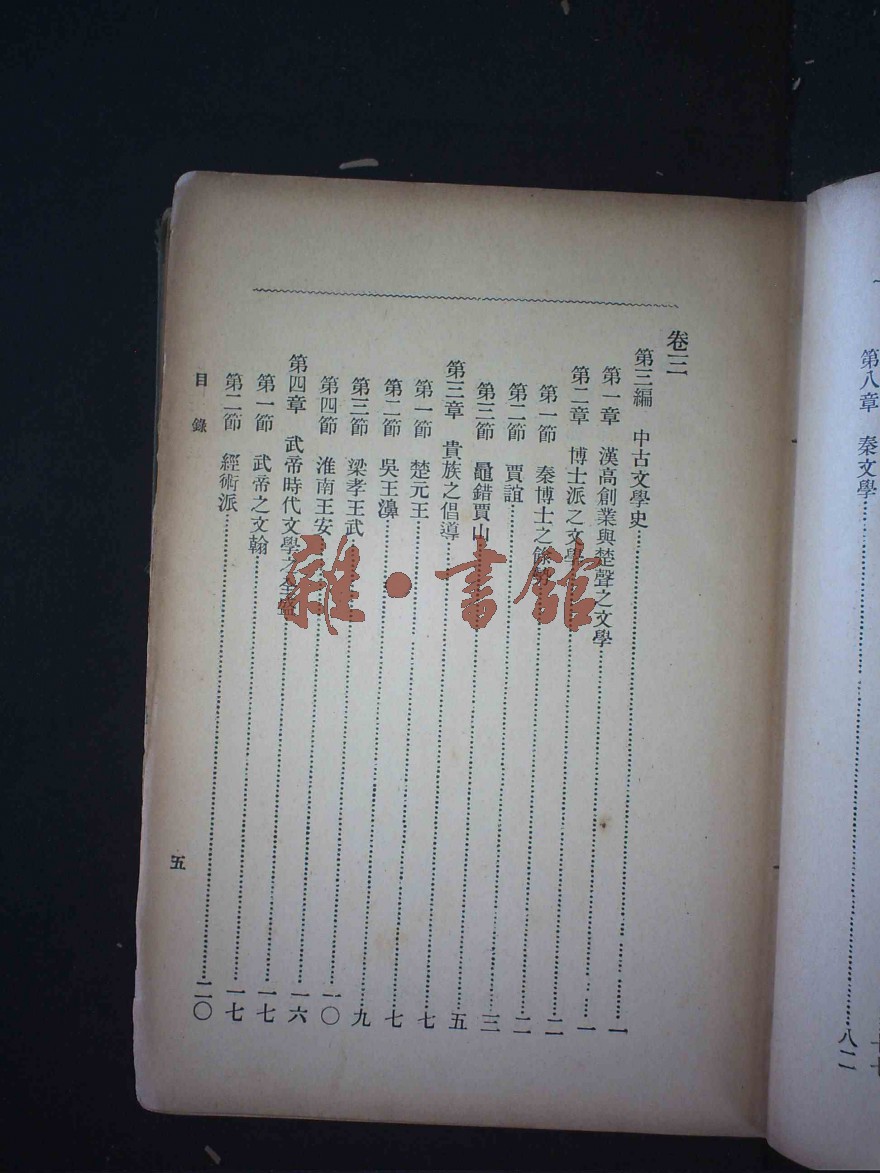 卷三
第三編 中古文學史……一
第一章 漢高創業與楚聲之文學……一
第二章 博士派之文學……二
第一節 秦博士之餘……二
第二節 賈誼……三
第三節 鼂錯賈山……五
第三章 貴族之倡導……七
第一節 楚元王……七
第二節 吳王濞……九
第三節 梁孝王武……一〇
第四節 淮南王安……一六
第四章 武帝時代文學之全盛……一七
第一節 武帝之文翰……一七
第二節 經術派……二〇
目錄
五
第八章 秦文學……八二
雜·書館